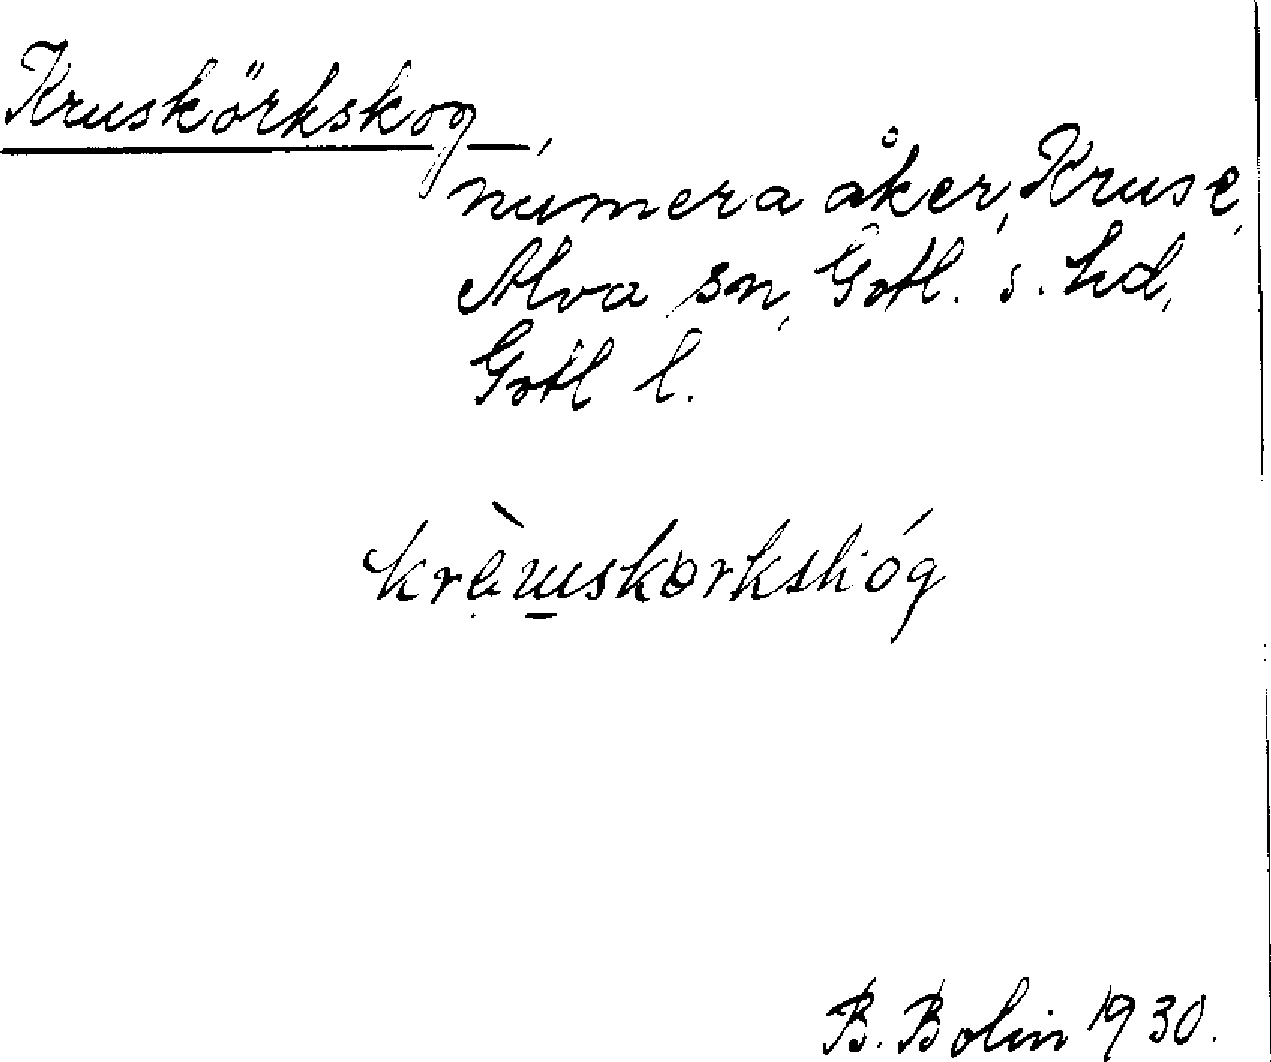 Kruskörkskog,
numera åker, Kruse,
Alva sn, Gotl. s. hd,
Gotl l.
B. Bolin 1930.